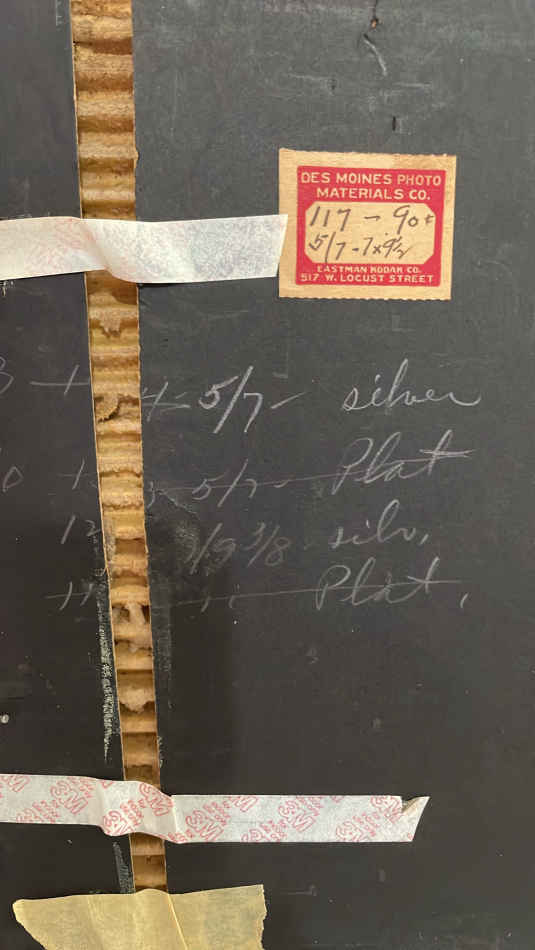 DES MOINES PHOTO
MATERIALS CO.
117 - 90¢
5/7 - 7x9½
EASTMAN KODAK CO.
517 W. LOCUST STREET
4 - 5/7 - silver
5/7 - Plat
12 3/8 silv,
11 11 Plat,
3M